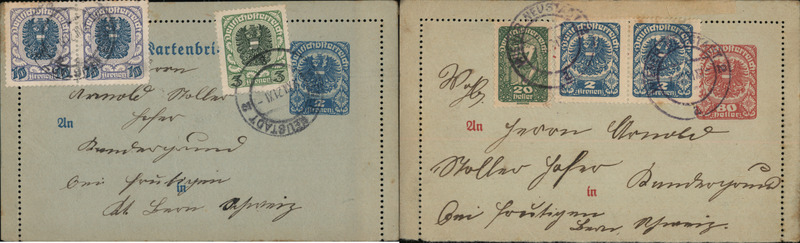 Deutschösterreich
10 10
Kronen
Deutschösterreich
3 3
Kronen
Kartenbri
Deutschösterreich
2
Kronen
NEUSTADT
Herrn
Arnold Stoller
Hofer
An
Kandergrund
bei Frutigen
in
Kt Bern Schweiz
WIENER NEUSTADT
Deutschösterreich
20
Heller
Deutschösterreich
2
Kronen
Deutschösterreich
2
Kronen
Deutschösterreich
80
Heller
An Herrn Arnold
Stoller Hofer Kandergrund
in
bei Frutigen
Bern Schweiz.